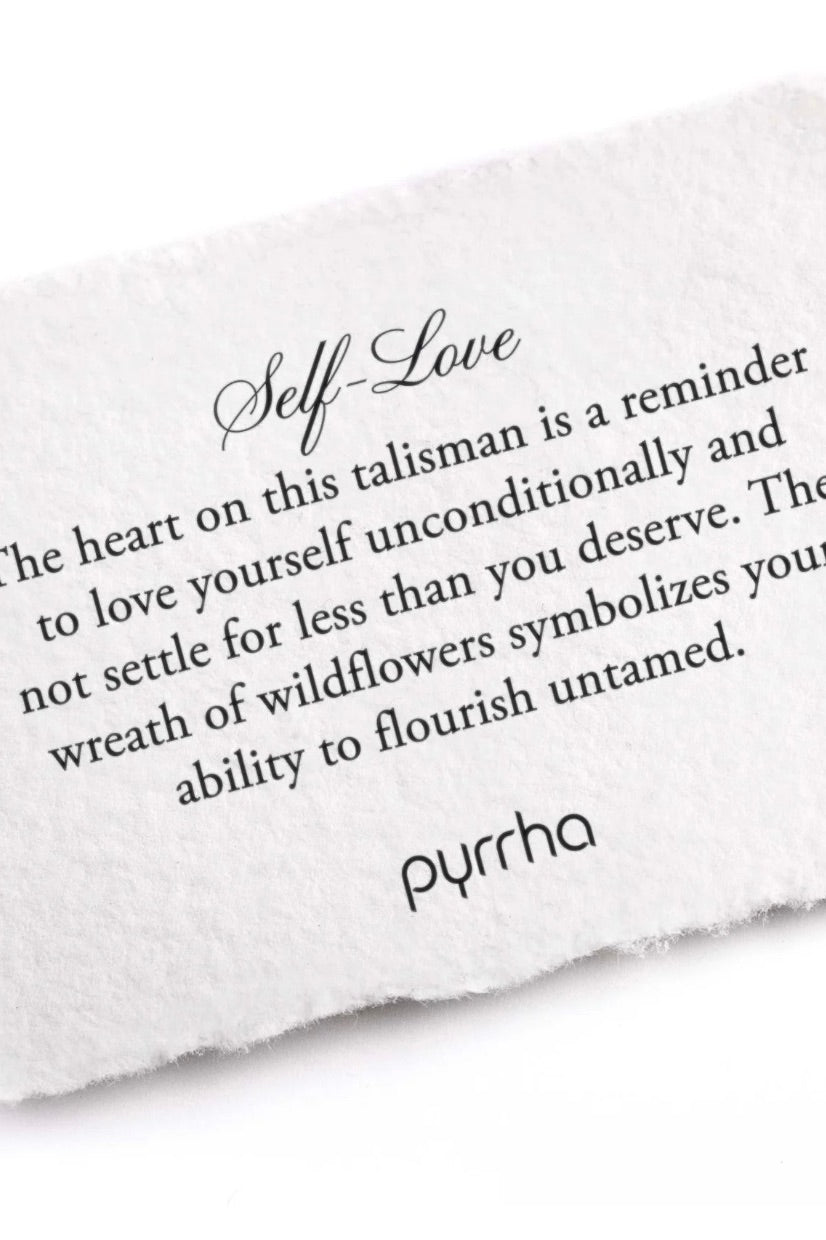 Self-Love
The heart on this talisman is a reminder
to love yourself unconditionally and
not settle for less than you deserve. The
wreath of wildflowers symbolizes your
ability to flourish untamed.
pyrrha